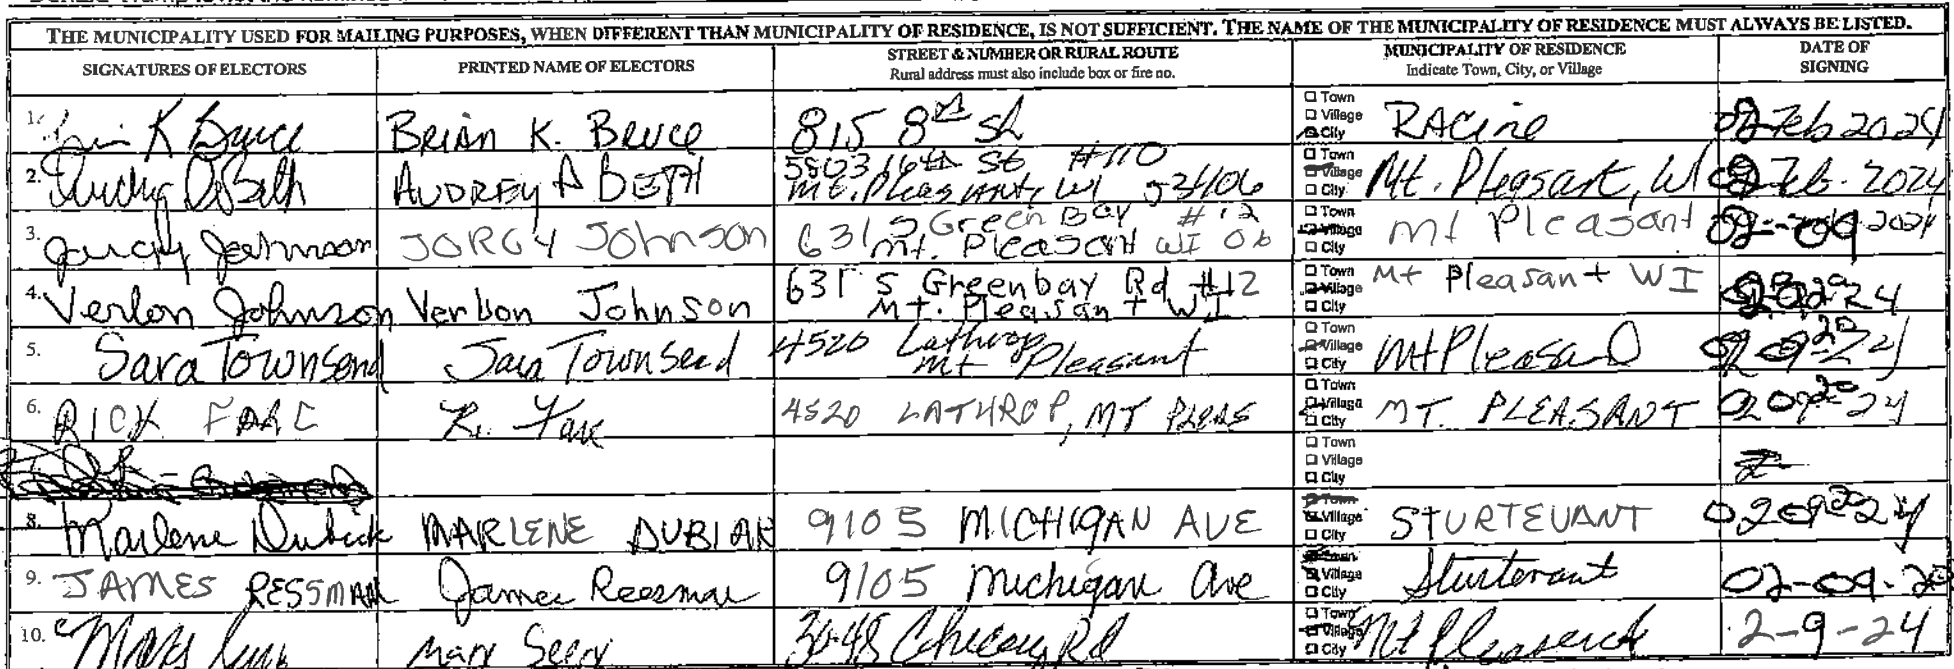 THE MUNICIPALITY USED FOR MAILING PURPOSES, WHEN DIFFERENT THAN MUNICIPALITY OF RESIDENCE, IS NOT SUFFICIENT. THE NAME OF THE MUNICIPALITY OF RESIDENCE MUST ALWAYS BE LISTED.
SIGNATURES OF ELECTORS
PRINTED NAME OF ELECTORS
STREET & NUMBER OR RURAL ROUTE
Rural address must also include box or fire no.
MUNICIPALITY OF RESIDENCE
Indicate Town, City, or Village
DATE OF
SIGNING
1. K Bruce
Brian K. Bruce
815 8th St
Town
Village
City
RACine
Feb 2024
2.
AUDREY A BETH
5803 16th St #110
Mt. Pleasant, WI 53406
Town
Village
City
Mt. Pleasant, WI
Feb. 2024
3. Johnson
JORGY JOHNSON
631 S Green Bay #12
Mt. Pleasant WI 06
Town
Village
City
Mt Pleasant
02-09 2024
4. Verlon Johnson
Verlon Johnson
631 S Greenbay Rd #12
Mt. Pleasant WI
Town
Village
City
Mt Pleasant WI
24
5. Sara Townsend
Sara Townsend
4520 Lathrop
Mt Pleasant
Town
Village
City
Mt Pleasant
02 09 2024
6. RICK
R.
4520 LATHROP, MT PLEAS
Town
Village
City
MT. PLEASANT
02 09 2024
Town
Village
City
8. Marlene
MARLENE DUBIAK
9105 MICHIGAN AVE
Town
Village
City
STURTEVANT
02 09 2024
9. JAMES RESSMAN
James Ressman
9105 Michigan Ave
Village
City
Sturtevant
02-09-20
10. Mary
Mary
Rd
Town
Village
City
Mt Pleasant
2-9-24